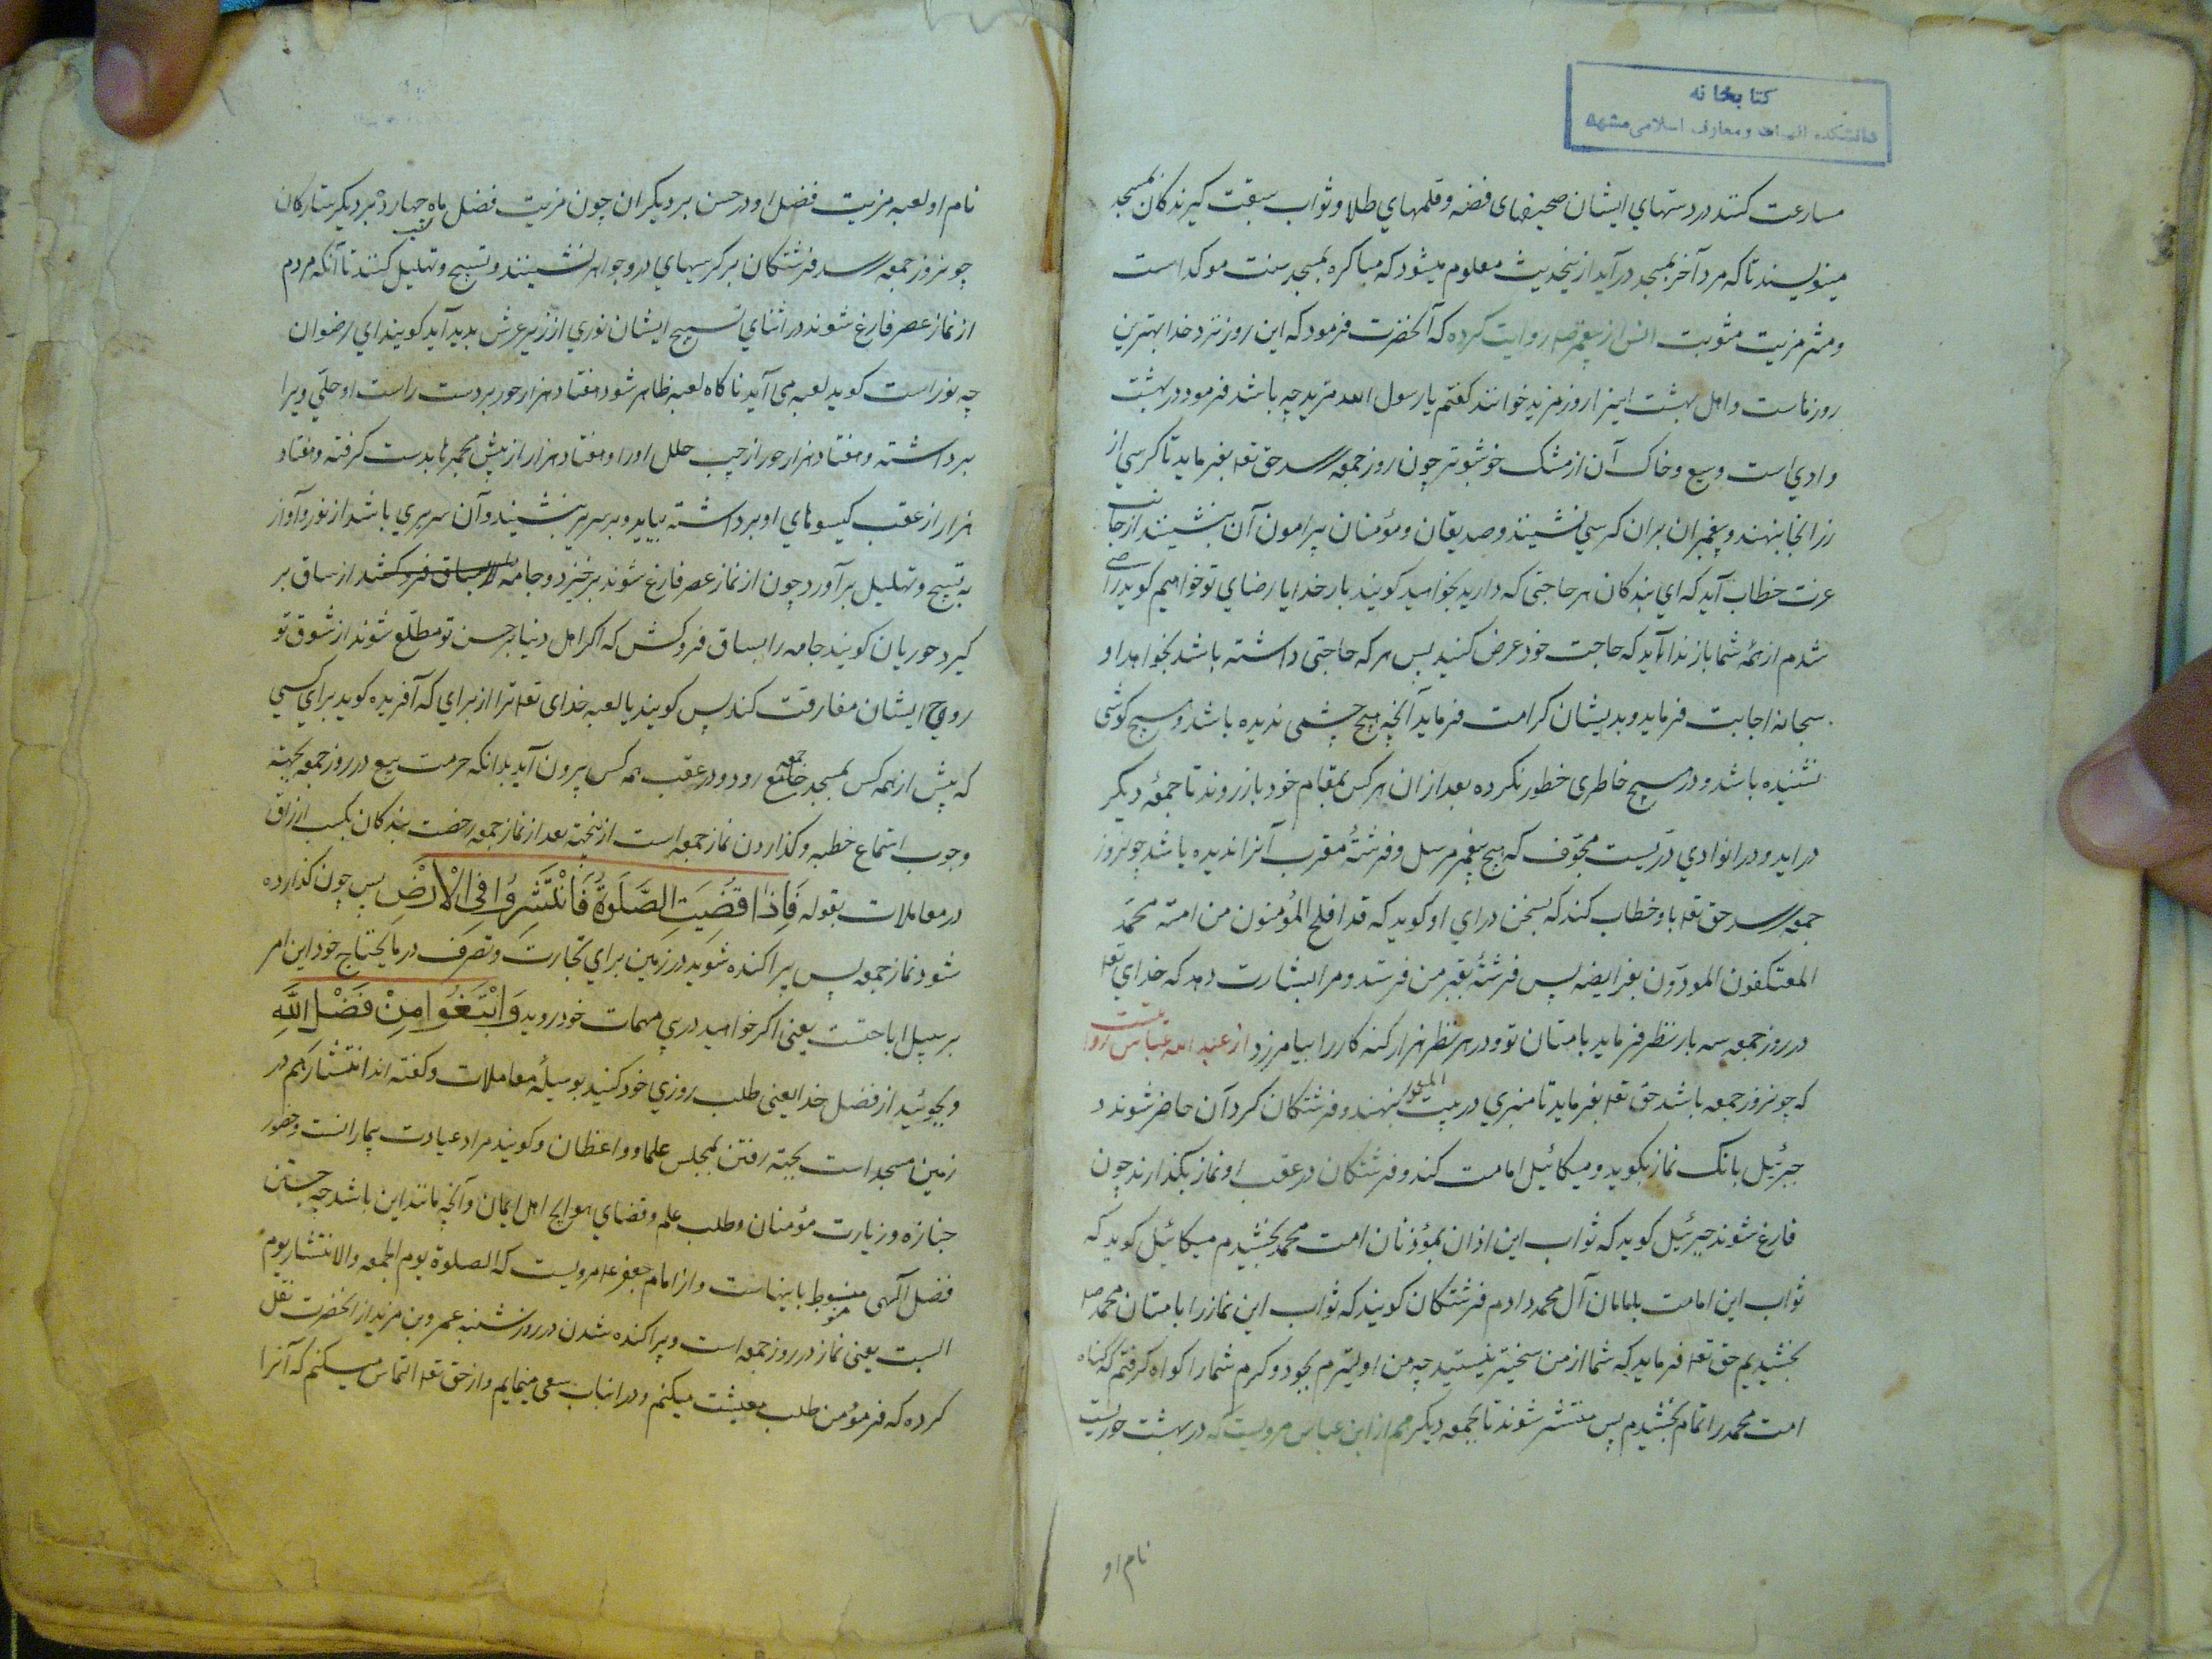 کتابخانه
دانشکده الهیات و معارف اسلامی مشهد
مسارعت کنند در دستهاي ایشان صحیفهای فضه و قلمهاي طلا و ثواب سبقت گیرندکان بمسجد
مینویسند تا که مرد آخر بمسجد درآید ازینحدیث معلوم میشود که مباکره بمسجد سنت موکد است
و مثمر مزیت مثوبت انس از پیغمبر صلم روایت کرده که آنحضرت فرمود که این روز نزد خدا بهترین
روزهاست و اهل بهشت اینرا روز مزید خوانند کفتم یا رسول الله مزید چه باشد فرمود در بهشت
وادي است وسیع و خاک آن از مشک خوشبوتر چون روز جمعه رسد حق تع بفرماید تا کرسي از
زر انجا بنهند و پیغمبران بران کرسي نشینند و صدیقان و مؤمنان پیرامون آن بنشینند از جانب
عزت خطاب آید که اي بندکان هر حاجتی که دارید بخواهید کویند بار خدایا رضاي تو خواهیم کوید راضی
شدم از همه شما باز ندا آید که حاجت خود عرض کنید پس هر که حاجتی داشته باشد بخواهد او
سبحانه اجابت فرماید و بدیشان کرامت فرماید آنچه هیچ چشمی ندیده باشد و هیچ کوشی
نشنیده باشد و در هیچ خاطری خطور نکرده بعد ازان هر کس بمقام خود باز روند تا جمعهٔ دیکر
دراید و درانوادي قریست مجوّف که هیچ پیغمبر مرسل و فرشتهٔ مقرب آنرا ندیده باشد چونروز
جمعه رسد حق تع باو خطاب کند که بسخن دراي او کوید که قد افلح المؤمنون من امة محمّد
المعتکفون المودّون بفرایضه پس فرشتهٔ بقبر من فرستد و مرا بشارت دهد که خداي تع
در روز جمعه سه بار نظر فرماید بامتان تو و در هر نظر هزار کنه کار را بیامرزد از عبد الله عباس روایتست
که چونروز جمعه باشد حق تع بفرماید تا منبري در بیت المعمور بنهند و فرشتکان کرد آن حاضر شوند و
جبرئیل بانک نماز بکوید و میکائیل امامت کند و فرشتکان در عقب او نماز بکذارند چون
فارغ شوند جبرئیل کوید که ثواب این اذان بمؤذنان امت محمد بخشیدم میکائیل کوید که
ثواب این امامت بامامان آل محمد دادم فرشتکان کویند که ثواب این نماز را بامتان محمد صلم
بخشیدیم حق تع فرماید که شما از من سخیتر نیستید چه من اولیترم بجود و کرم شما را کواه کرفتم که کناه
امت محمد را تمام بخشیدم پس منتشر شوند تا بجمعه دیکر هم از ابن عباس مرویست که در بهشت حوریست
نام او
نام او لعبه مزیت فضل او در حسن بر دیکران چون مزیت فضل ماه شب چهارده بر دیکر ستارکان
چونروز جمعه رسد فرشتکان بر کرسیهاي در و جواهر نشینند و تسبیح و تهلیل کنند تا آنکه مردم
از نماز عصر فارغ شوند در اثناي تسبیح ایشان نوري از زیر عرش بدید آید کویند اي رضوان
چه نور است کوید لعبه می آید ناکاه لعبه ظاهر شود هفتاد هزار حور بر دست راست او حلّي ویرا
برداشته و هفتاد هزار حور از چپ حلل او را و هفتاد هزار از پیش مجمرها بدست کرفته و هفتاد
هزار از عقب کیسوهاي او برداشته بیاید و بر سریر بنشیند و آن سریري باشد از نور و آواز
به تسبیح و تهلیل برآورد چون از نماز عصر فارغ شوند برخیزد و جامه را از ساق بر
کیرد حوریان کویند جامه را بساق فروکش که اکر اهل دنیا بر حسن تو مطلع شوند از شوق تو
روح ایشان مفارقت کند پس کویند یا لعبه خدای تع ترا از براي که آفریده کوید براي کسي
که پیش از همه کس بمسجد جمعه رود و در عقب همه کس بیرون آید بدانکه حرمت بیع در روز جمعه بجهة
وجوب استماع خطبه و کذاردن نماز جمعه است ازینجهة بعد از نماز جمعه رخصت بندکان بکسب ارزاق
در معاملات بقوله فَاِذَا قُضِیَتِ الصَّلٰوةُ فَانْتَشِرُوا فِی الْاَرْضِ پس چون کذارده
شود نماز جمعه پس پراکنده شوید در زمین براي تجارت و تصرف در مایحتاج خود این امر
بر سبیل اباحتست یعنی اکر خواهید در پی مهمات خود روید وَابْتَغُوا مِنْ فَضْلِ اللّٰهِ
و بجوئید از فضل خدا یعنی طلب روزي خود کنید بوسیلهٔ معاملات و کفته اند انتشار هم در
زمین مسجد است بجهة رفتن بمجلس علما و واعظان و کویند مراد عیادت بیمارانست و حضور
جنازه و زیارت مؤمنان و طلب علم و قضاي حوایج اهل ایمان و آنچه مانند این باشد چه جستن
فضل آلهی منوط باینهاست و از امام جعفر ع مرویست که الصلوة یوم الجمعه و الانتشار یوم
السبت یعنی نماز در روز جمعه است و پراکنده شدن در روز شنبه عمرو بن مزید از انحضرت نقل
کرده که فرمود من طلب معیشت میکنم و در انباب سعی مینمایم و از حق تع التماس میکنم که آنرا